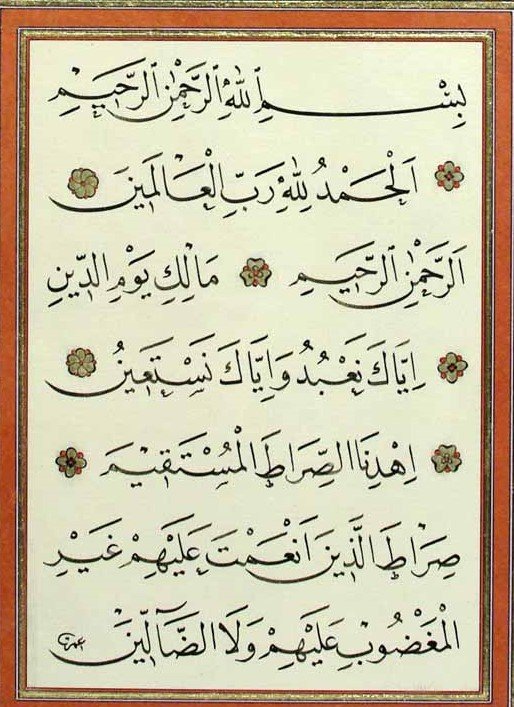 بِسْمِ اللهِ الرَّحْمٰنِ الرَّحِيمِ
اَلْحَمْدُ لِلّٰهِ رَبِّ الْعَالَمِينَ
اَلرَّحْمٰنِ الرَّحِيمِ مَالِكِ يَوْمِ الدِّينِ
اِيَّاكَ نَعْبُدُ وَاِيَّاكَ نَسْتَعِينُ
اِهْدِنَا الصِّرَاطَ الْمُسْتَقِيمَ
صِرَاطَ الَّذِينَ اَنْعَمْتَ عَلَيْهِمْ غَيْرِ
الْمَغْضُوبِ عَلَيْهِمْ وَلَا الضَّٓالِّينَ